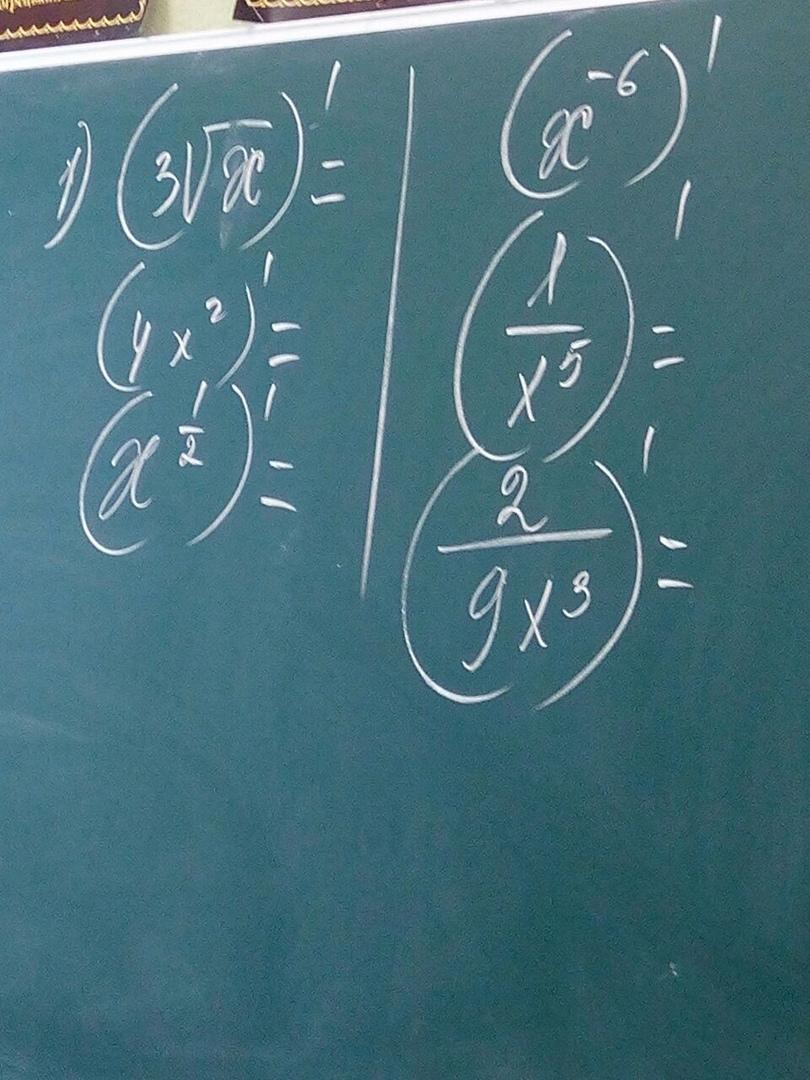 1) (3√x)' =
(4x²)' =
(x^(1/2))' =
(x⁻⁶)'
(1/x⁵)' =
(2/9x³)' =